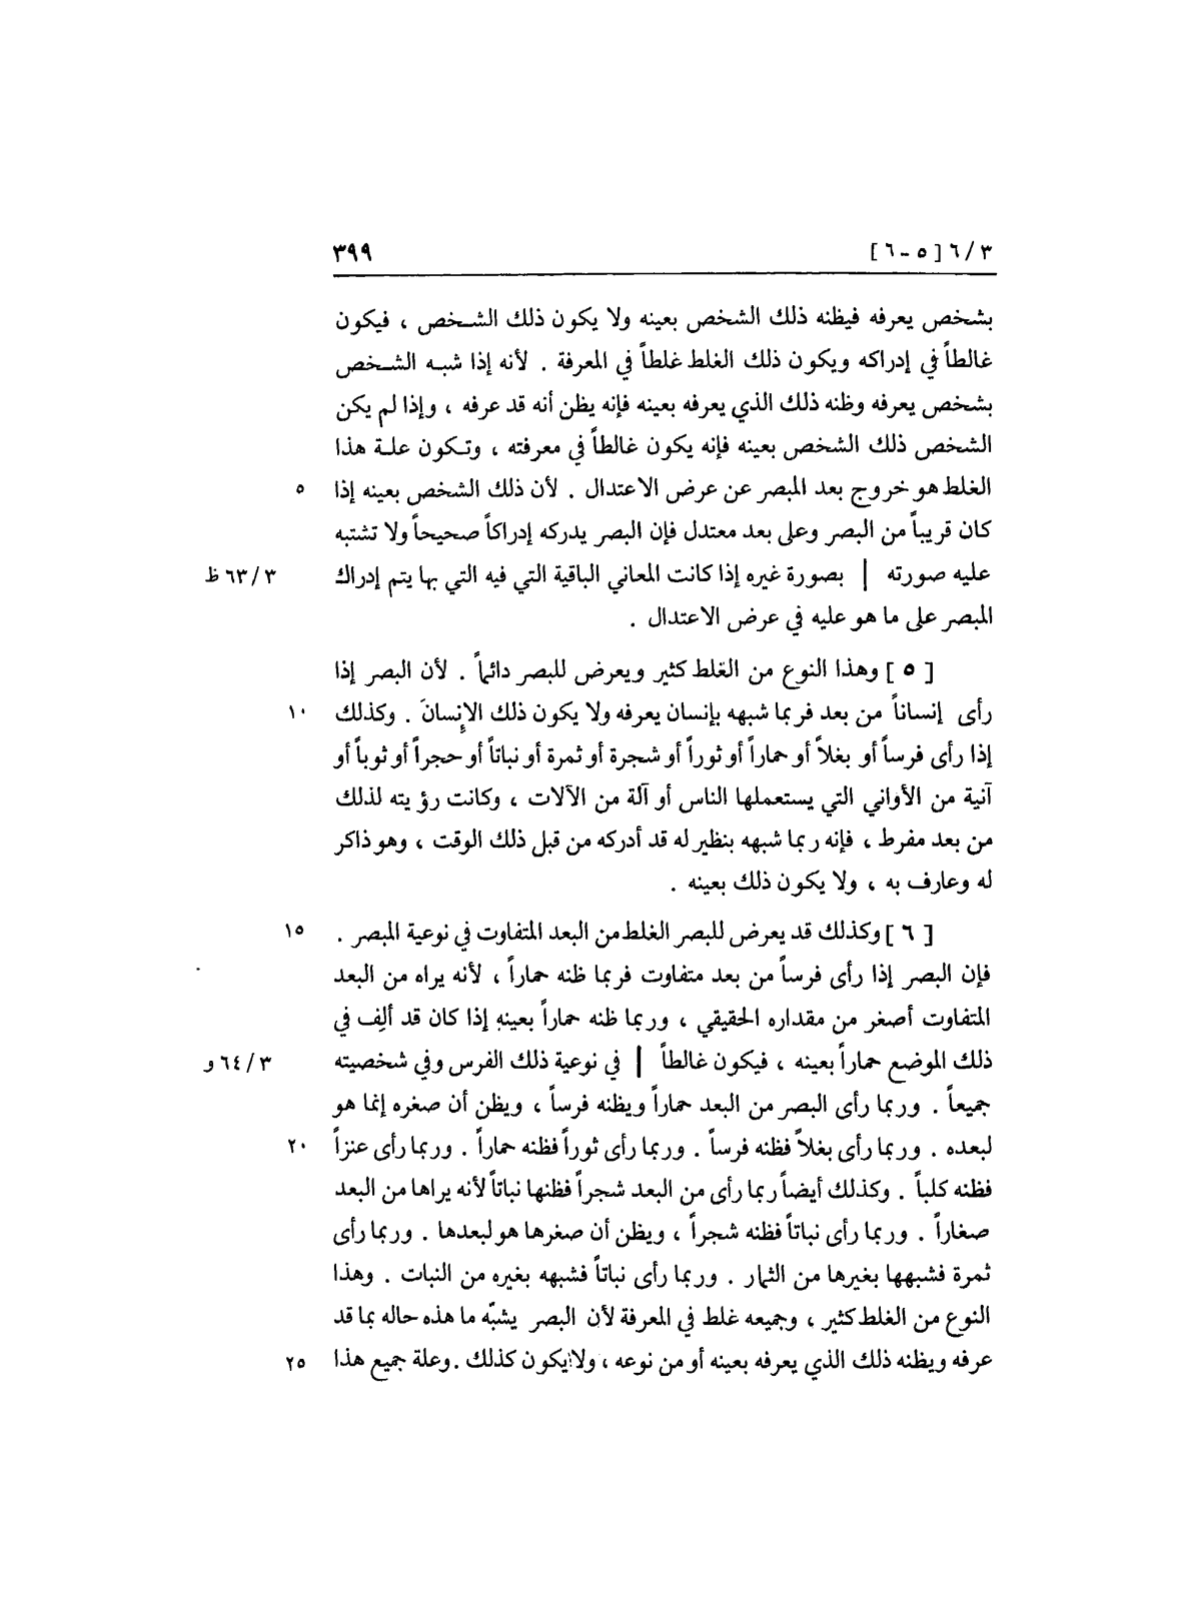 ٣/ ٦ [ ٥ - ٦ ] ٣٩٩
بشخص يعرفه فيظنه ذلك الشخص بعينه ولا يكون ذلك الشخص ، فيكون
غالطاً في إدراكه ويكون ذلك الغلط غلطاً في المعرفة . لأنه إذا شبه الشخص
بشخص يعرفه وظنه ذلك الذي يعرفه بعينه فإنه يظن أنه قد عرفه ، وإذا لم يكن
الشخص ذلك الشخص بعينه فإنه يكون غالطاً في معرفته ، وتكون علة هذا
الغلط هو خروج بعد المبصر عن عرض الاعتدال . لأن ذلك الشخص بعينه إذا ٥
كان قريباً من البصر وعلى بعد معتدل فإن البصر يدركه إدراكاً صحيحاً ولا تشتبه
عليه صورته | بصورة غيره إذا كانت المعاني الباقية التي فيه التي بها يتم إدراك ٣/ ٦٣ ظ
المبصر على ما هو عليه في عرض الاعتدال .
[ ٥ ] وهذا النوع من الغلط كثير ويعرض للبصر دائماً . لأن البصر إذا
رأى إنساناً من بعد فربما شبهه بإنسان يعرفه ولا يكون ذلك الإنسانَ . وكذلك ١٠
إذا رأى فرساً أو بغلاً أو حماراً أو ثوراً أو شجرة أو ثمرة أو نباتاً أو حجراً أو ثوباً أو
آنية من الأواني التي يستعملها الناس أو آلة من الآلات ، وكانت رؤيته لذلك
من بعد مفرط ، فإنه ربما شبهه بنظير له قد أدركه من قبل ذلك الوقت ، وهو ذاكر
له وعارف به ، ولا يكون ذلك بعينه .
[ ٦ ] وكذلك قد يعرض للبصر الغلط من البعد المتفاوت في نوعية المبصر . ١٥
فإن البصر إذا رأى فرساً من بعد متفاوت فربما ظنه حماراً ، لأنه يراه من البعد
المتفاوت أصغر من مقداره الحقيقي ، وربما ظنه حماراً بعينه إذا كان قد ألِف في
ذلك الموضع حماراً بعينه ، فيكون غالطاً | في نوعية ذلك الفرس وفي شخصيته ٣/ ٦٤ و
جميعاً . وربما رأى البصر من البعد حماراً ويظنه فرساً ، ويظن أن صغره إنما هو
لبعده . وربما رأى بغلاً فظنه فرساً . وربما رأى ثوراً فظنه حماراً . وربما رأى عنزاً ٢٠
فظنه كلباً . وكذلك أيضاً ربما رأى من البعد شجراً فظنها نباتاً لأنه يراها من البعد
صغاراً . وربما رأى نباتاً فظنه شجراً ، ويظن أن صغرها هو لبعدها . وربما رأى
ثمرة فشبهها بغيرها من الثمار . وربما رأى نباتاً فشبهه بغيره من النبات . وهذا
النوع من الغلط كثير ، وجميعه غلط في المعرفة لأن البصر يشبّه ما هذه حاله بما قد
عرفه ويظنه ذلك الذي يعرفه بعينه أو من نوعه ، ولا يكون كذلك . وعلة جميع هذا ٢٥